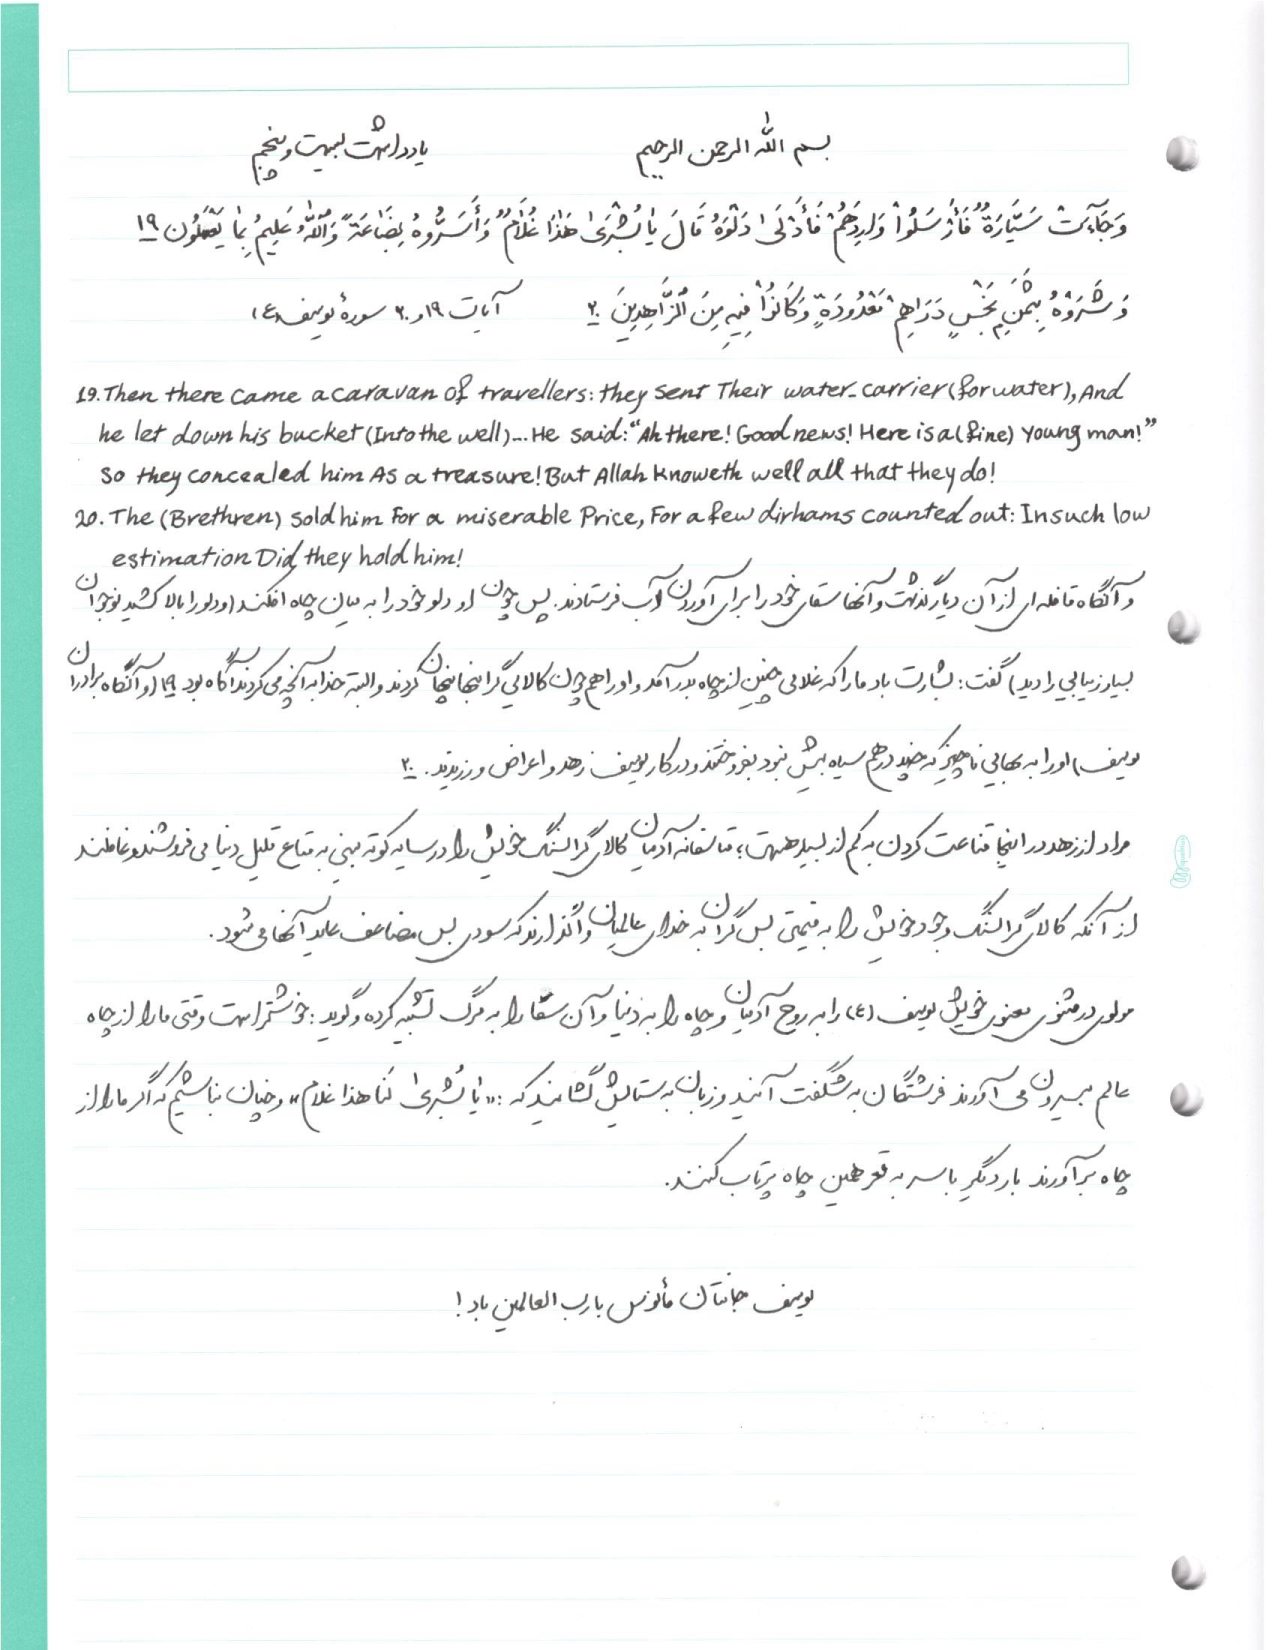 بسم الله الرحمن الرحیم یادداشت بیست و پنجم
وَجَآءَتْ سَيَّارَةٌ فَأَرْسَلُوا۟ وَارِدَهُمْ فَأَدْلَىٰ دَلْوَهُۥ قَالَ يَٰبُشْرَىٰ هَٰذَا غُلَٰمٌ وَأَسَرُّوهُ بِضَٰعَةً وَٱللَّهُ عَلِيمٌۢ بِمَا يَعْمَلُونَ ۱۹
وَشَرَوْهُ بِثَمَنٍۭ بَخْسٍ دَرَاهِمَ مَعْدُودَةٍ وَكَانُوا۟ فِيهِ مِنَ ٱلزَّٰهِدِينَ ۲۰ آیات ۱۹ و ۲۰ سورهٔ یوسف (ع)
19. Then there came a caravan of travellers: they sent Their water-carrier (for water), And
he let down his bucket (Into the well)... He said: "Ah there! Good news! Here is a (fine) young man!"
So they concealed him As a treasure! But Allah Knoweth well all that they do!
20. The (Brethren) Sold him For a miserable Price, For a few dirhams counted out: In such low
estimation Did they hold him!
و آنگاه قافله ای از آن دیار گذشت و آنها سقای خود را برای آوردن آب فرستادند. پس چون او دلو خود را به میان چاه افکند (و دلو را بالا کشید نوجوان
بسیار زیبایی را دید) گفت: بشارت باد ما را که غلامی چنین از چاه بدر آمد و او را هم چون کالایی گرانبها پنهان کردند و البته خدا به آنچه می کردند آگاه بود ۱۹ (و آنگاه برادران
یوسف) او را به بهایی ناچیز که چند درهم سیاه بیش نبود بفروختند و در کار یوسف زهد و اعراض ورزیدند. ۲۰
مراد از زهد در اینجا قناعت کردن به کم از بسیار هست؛ متاسفانه آدمیان کالای گرانسنگ خویش را در سایه کوته بینی به متاع قلیل دنیا می فروشند و غافلند
از آنکه کالای گرانسنگ وجود خویش را به قیمتی بس گران به خدای عالمیان واگذارند که سودی بس مضاعف عاید آنها می شود.
مولوی در مثنوی معنوی خویش یوسف (ع) را به روح آدمیان و چاه را به دنیا و آن سقا را به مرگ تشبیه کرده و گوید: خوشتر است وقتی ما را از چاه
عالم بیرون می آورند فرشتگان به شگفت آیند و زبان به ستایش گشایند که: «یا بُشریٰ لَنا هذا غلام» و چنان نباشیم که اگر ما را از
چاه برآورند بار دیگر با سر به قعر همین چاه پرتاب کنند.
یوسف جانتان مأنوس با رب العالمین باد!